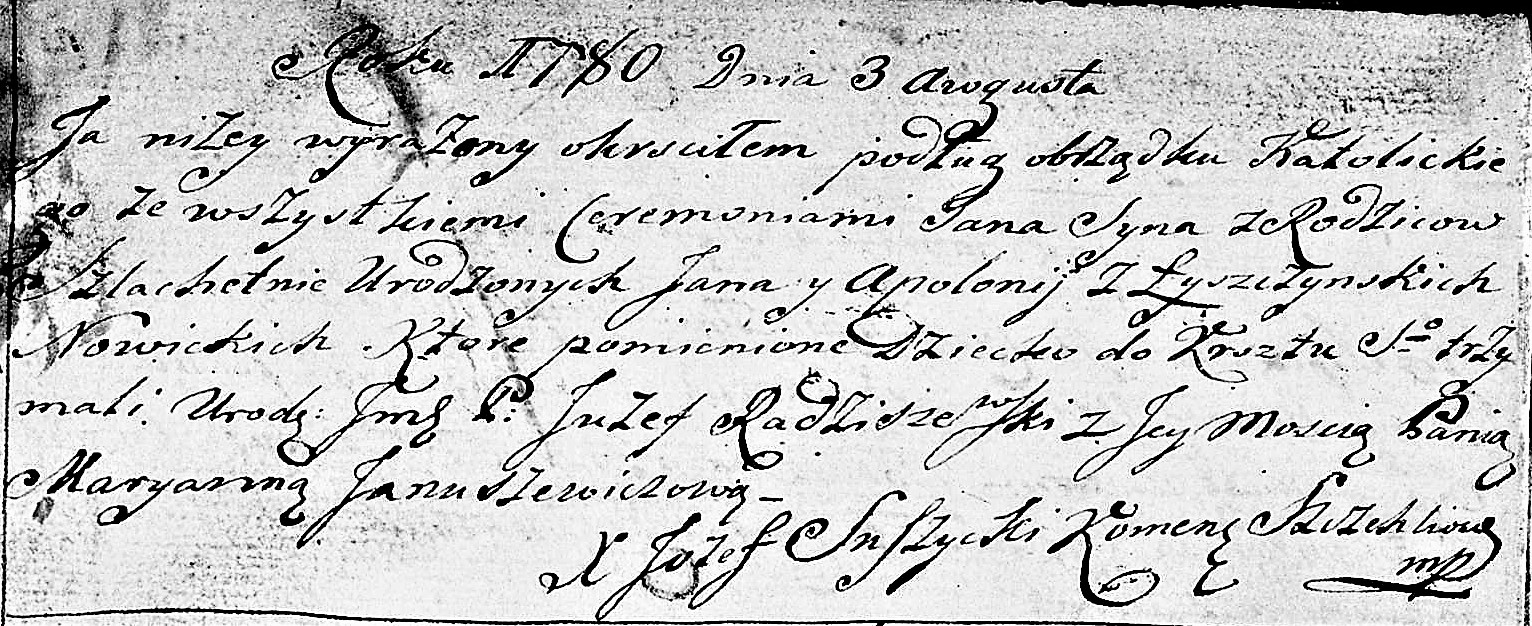 Roku 1780 Dnia 3 Awgusta
Ja niżey wyrażony okrsciłem podług obrządku Katolickie
go ze wszystkiemi Ceremoniami Jana Syna z Rodzicow
Szlachetnie Urodzonych Jana y Apolonij z Łyszczynskich
Nowickich Ktore pomienione Dziecko do Krsztu S:o trzy
mali Urodz: Jmć P: Juzef Radziszewski z Jey Moscią Panią
Maryanną Januszewiczową –
X Jozef Komend mp